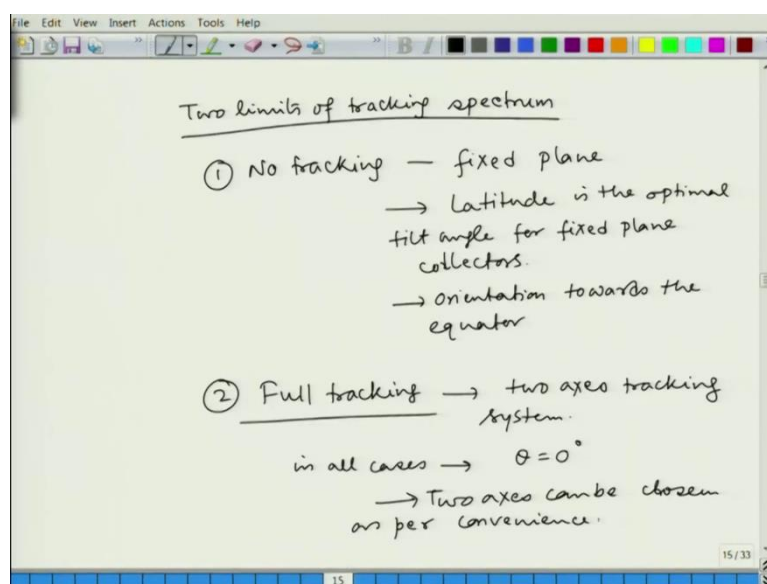 File Edit View Insert Actions Tools Help
B I
Two limits of tracking spectrum
① No tracking — fixed plane
→ Latitude is the optimal
tilt angle for fixed plane
collectors.
→ orientation towards the
equator
② Full tracking → two axes tracking
system.
in all cases → θ = 0°
→ Two axes can be chosen
as per convenience.
15/33
15